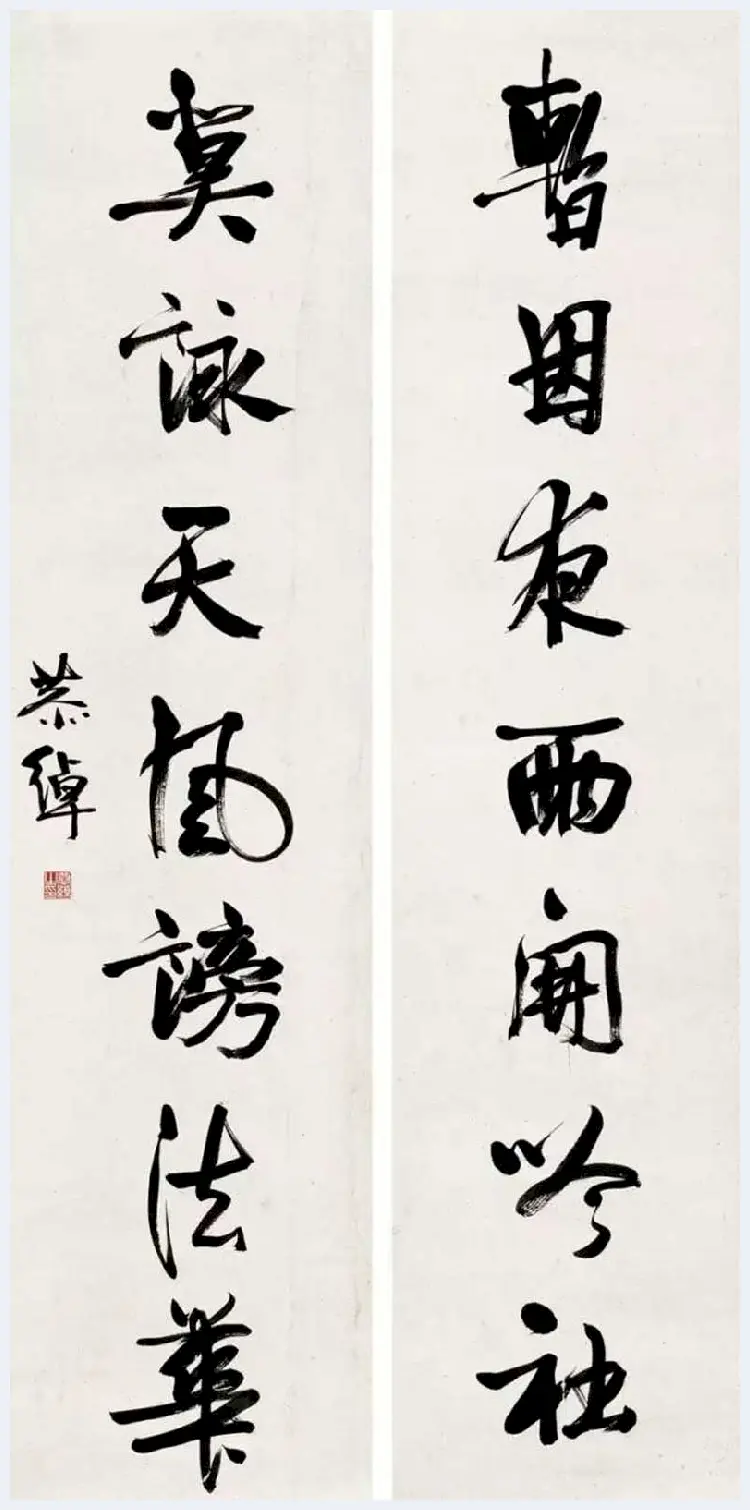 暫因夜雨開吟社
莫詠天風謗法華
恭綽